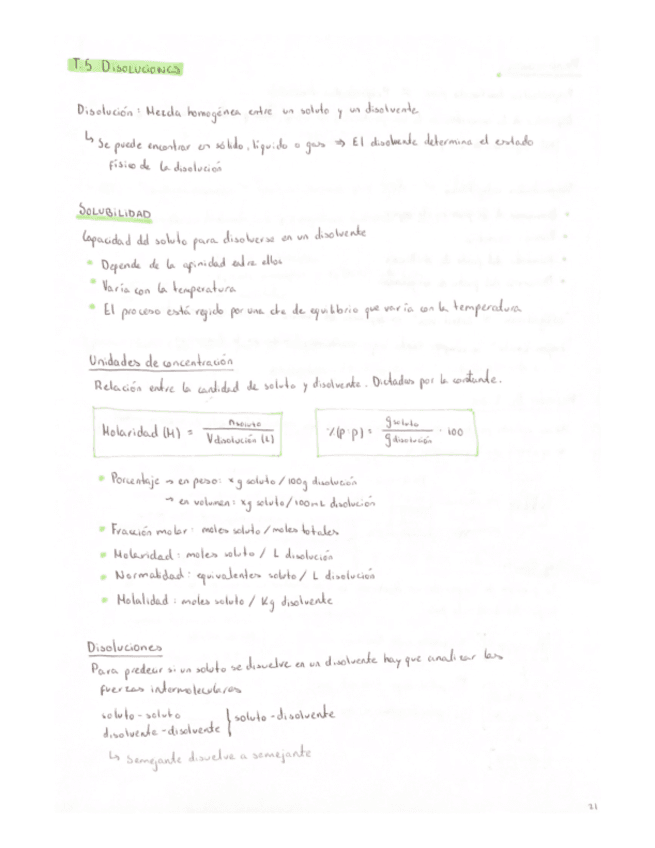 T.5 DISOLUCIONES
Disolución: Mezcla homogénea entre un soluto y un disolvente
↳ Se puede encontrar en sólido, líquido o gas ⇒ El disolvente determina el estado
físico de la disolución
SOLUBILIDAD
Capacidad del soluto para disolverse en un disolvente
• Depende de la afinidad entre ellos
• Varía con la temperatura
• El proceso está regido por una cte de equilibrio que varía con la temperatura
Unidades de concentración
Relación entre la cantidad de soluto y disolvente. Dictadas por la constante.
Molaridad (M) = n soluto / V disolución (L)
%(p:p) = g soluto / g disolución · 100
• Porcentaje → en peso: xg soluto/100g disolución
→ en volumen: xg soluto/100mL disolución
• Fracción molar: moles soluto/moles totales
• Molaridad: moles soluto / L disolución
• Normalidad: equivalentes soluto / L disolución
• Molalidad: moles soluto / Kg disolvente
Disoluciones
Para predecir si un soluto se disuelve en un disolvente hay que analizar las
fuerzas intermoleculares
soluto-soluto
disolvente-disolvente } soluto-disolvente
↳ Semejante disuelve a semejante